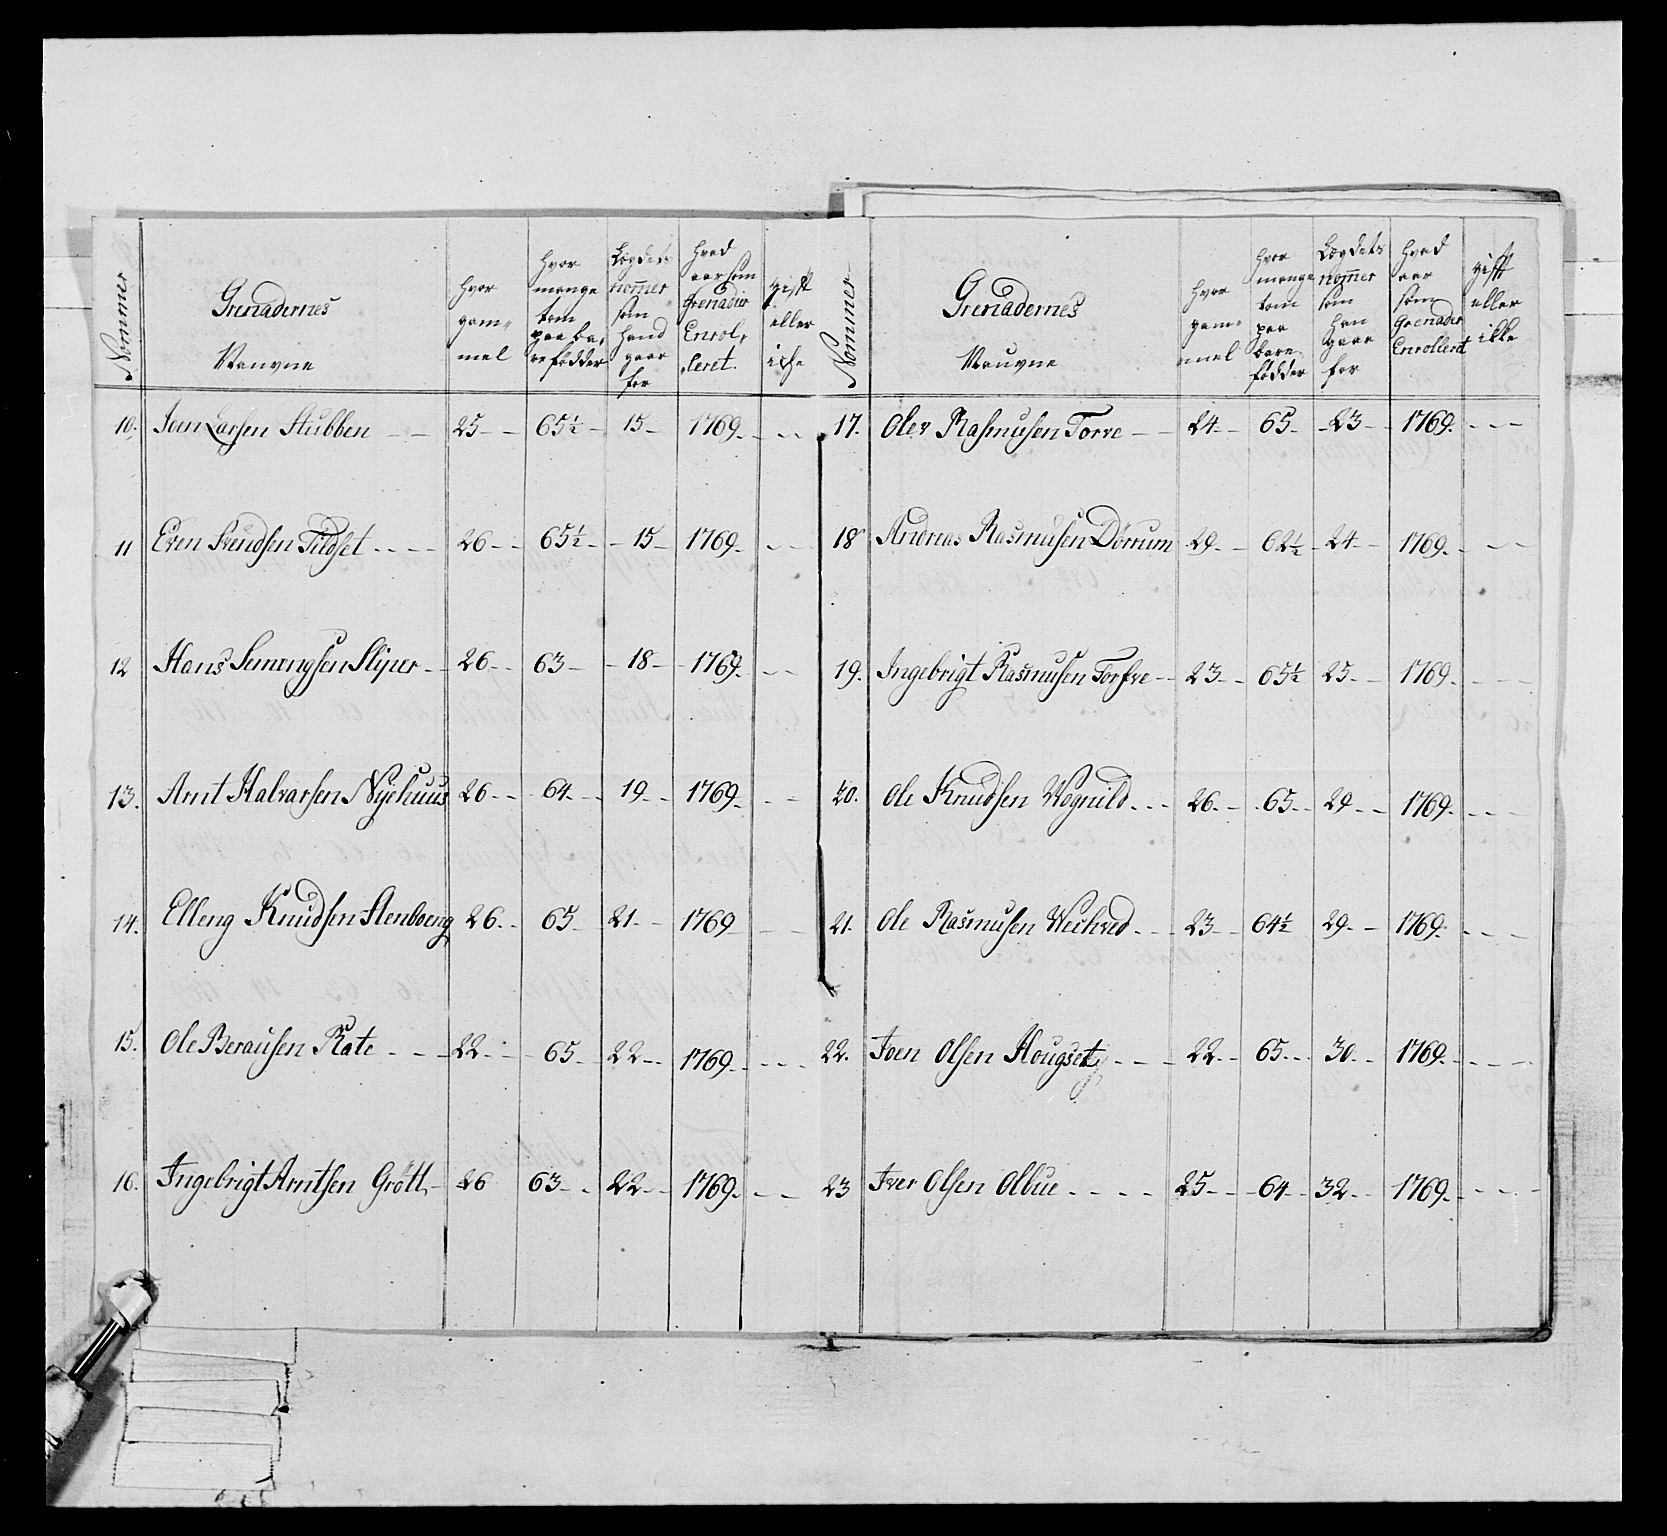 Nommer
Grenadernes
Nauvne
hvor
gam„
mel
hvor
mange
tom
paa ba„
refødder
Lægdets
nommer
som
hand
gaar
for
hvad
aar som
Grenadir
Enrol„
leret.
gifft
eller
iche
10. Joen Larsen Stubben 25 65½ 15 1769.
11 Even Svendsen Tildset 26 65½ 15 1769.
12 Hans Semengsen Sliper 26 63 18 1769.
13. Arnt Halvarsen Nyehuus 26 64 19 1769.
14. Elleng Knudsen Stenboeng 26 65 21 1769
15. Ole Berausen Rate 22 65 22 1769.
16. Ingebrigt Arntsen Grøtt 26 63 22 1769.
Nommer
Grenadernes
Nauvne
hvor
gam„
mel
hvor
mange
tom
paa
bare
fødder
Lægdets
nommer
som
han
gaar
for
hvad
aar
som
Grenader
Enrollerit
gifft
eller
ikke
17. Oler Rasmusen Torve 24 65 23 1769.
18 Andreas Rasmusen Dørrum 29 62½ 24 1769.
19. Ingebrigt Rasmusen Torfve 23 65½ 25 1769.
20. Ole Knudsen Wognild 26 65 29 1769.
21. Ole Rasmusen Wechved 23 64½ 29 1769.
22. Joen Olsen Hougset 22 65 30 1769.
23 Iver Olsen Olbue 25 64 32 1769.